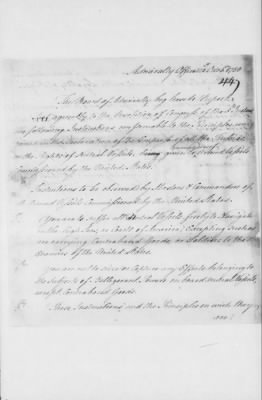 Admiralty Office 1780
447
The Board of Admiralty beg leave to report
That agreeably to the Resolution of Congress of the
the following Instructions conformable to the Principles con-
tained in the Declaration of the Empress of all the Russias
on the Rights of Neutral Vessels, being given to Armed Vessels
Commissioned by the United States.
Instructions to be observed by Masters & Commanders of
Armed Vessels Commissioned by the United States.
You are to suffer all Neutral Vessels freely to Navigate
on the high Seas, or Coasts of America, Excepting such as
are carrying Contraband Goods or Soldiers to the
Enemies of the United States.
You are not to seize or Capture any Effects belonging to
the Subjects of Belligerent Powers on board neutral Vessels,
except Contraband Goods.
These Instructions and the Principles on which they
are